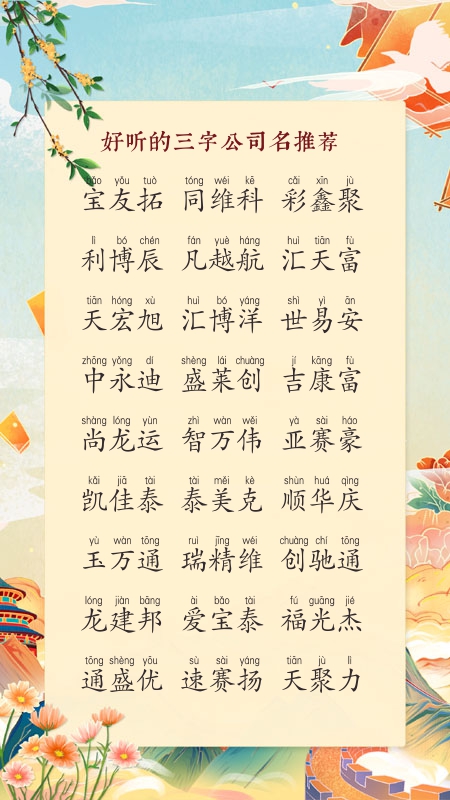 好听的三字公司名推荐
bǎo yǒu tuò tóng wéi kē cǎi xīn jù
宝友拓 同维科 彩鑫聚
lì bó chén fán yuè háng huì tiān fù
利博辰 凡越航 汇天富
tiān hóng xù huì bó yáng shì yì ān
天宏旭 汇博洋 世易安
zhōng yǒng dí shèng lái chuàng jí kāng fù
中永迪 盛莱创 吉康富
shàng lóng yùn zhì wàn wěi yà sài háo
尚龙运 智万伟 亚赛豪
kǎi jiā tài tài měi kè shùn huá qìng
凯佳泰 泰美克 顺华庆
yù wàn tōng ruì jīng wéi chuàng chí tōng
玉万通 瑞精维 创驰通
lóng jiàn bāng ài bǎo tài fú guāng jié
龙建邦 爱宝泰 福光杰
tōng shèng yōu sù sài yáng tiān jù lì
通盛优 速赛扬 天聚力